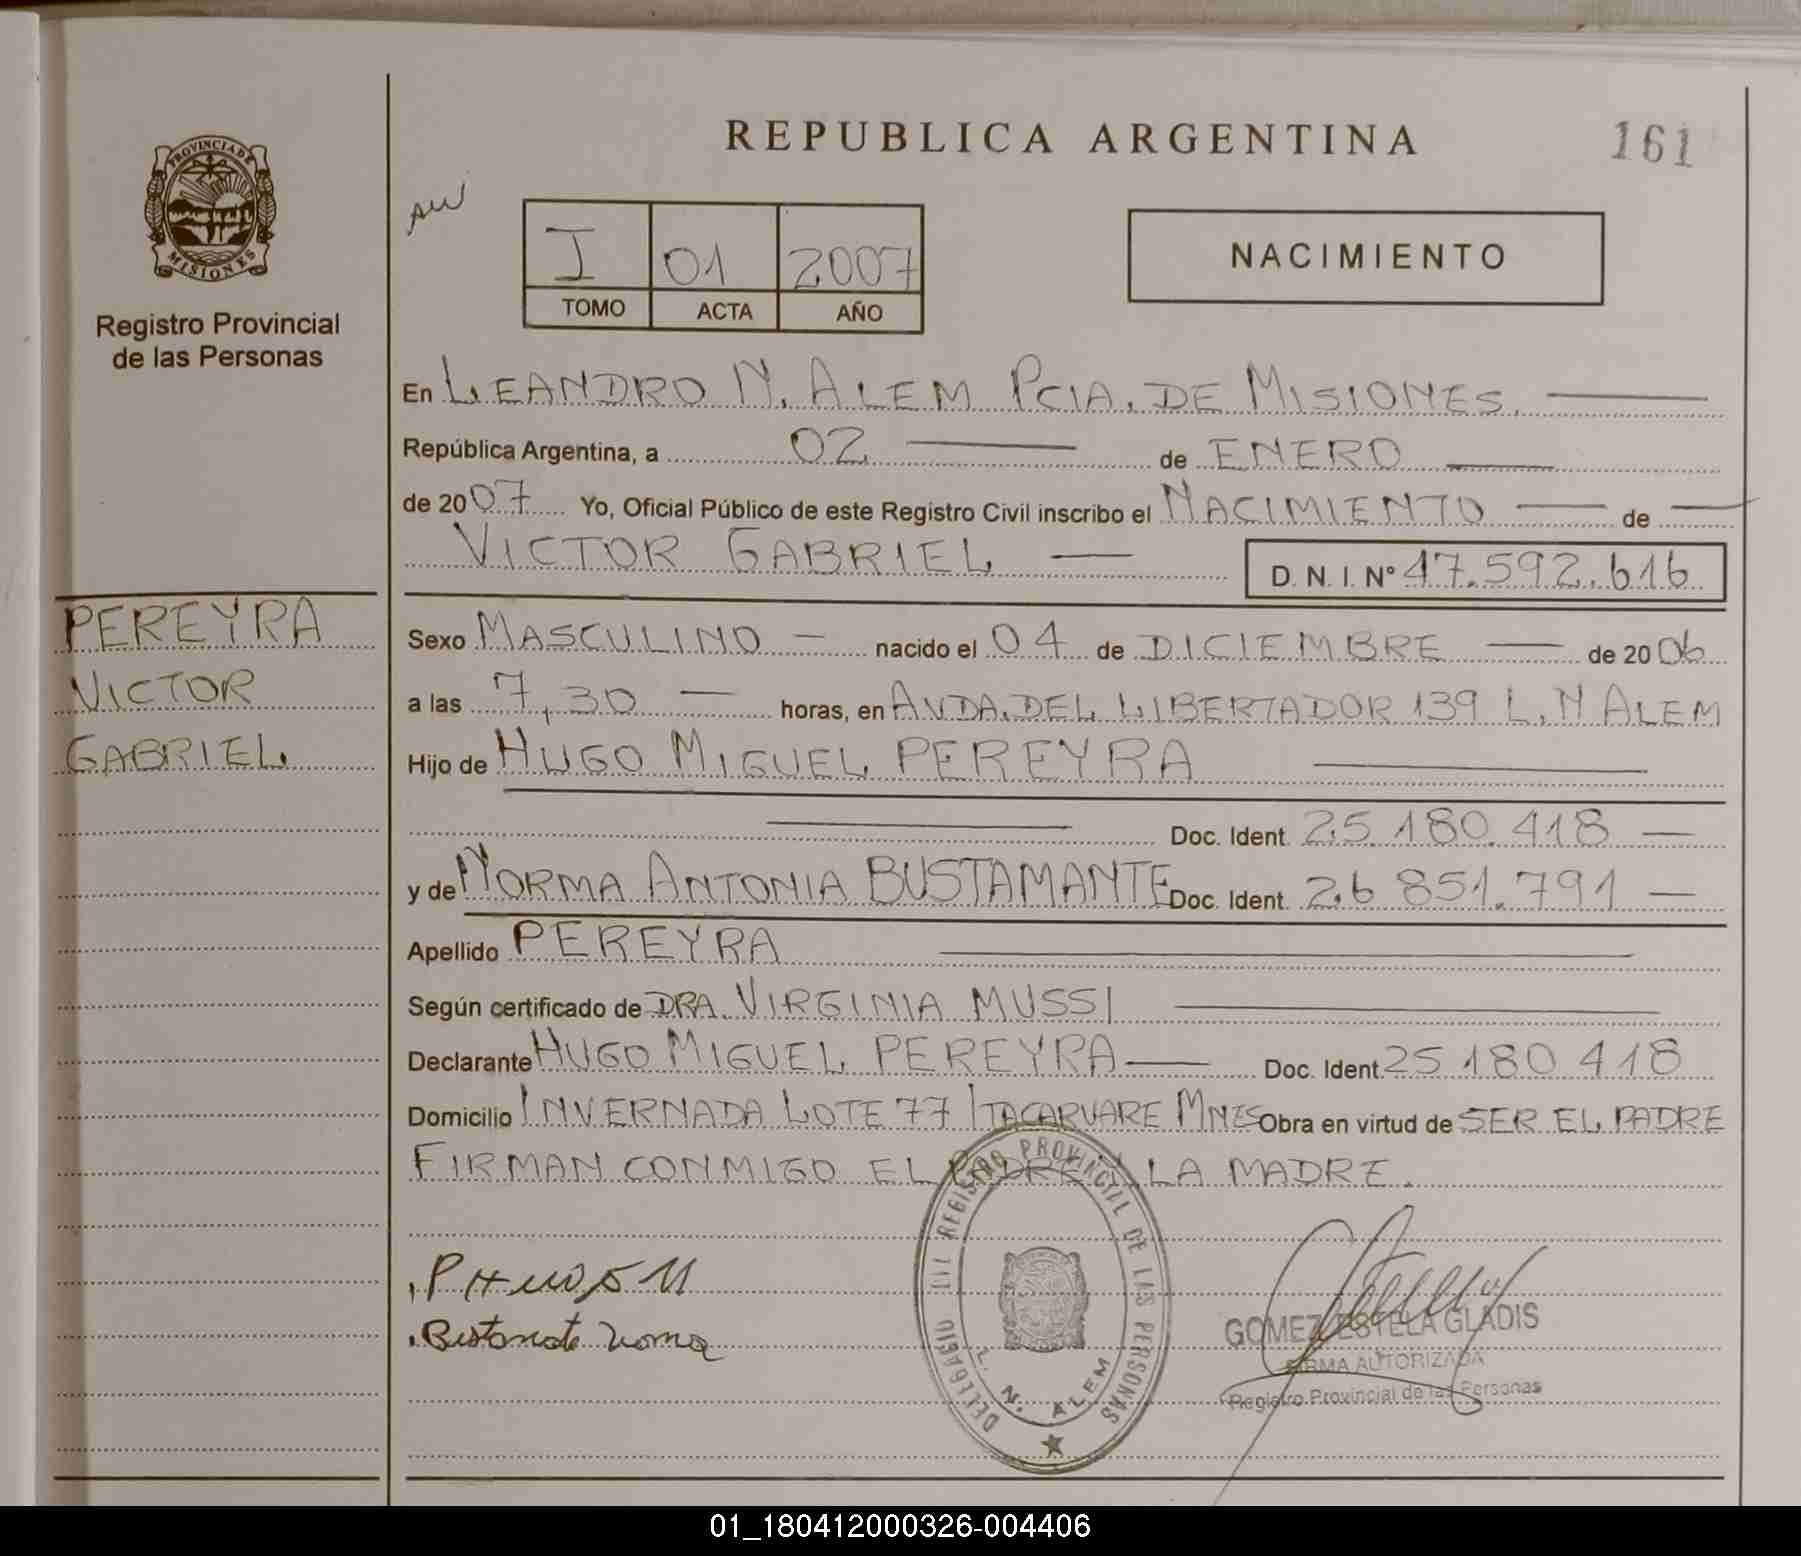 REPUBLICA ARGENTINA
161
PROVINCIA DE MISIONES
Registro Provincial
de las Personas
I 01 2007
TOMO ACTA AÑO
NACIMIENTO
En LEANDRO N. ALEM PCIA. DE MISIONES.
República Argentina, a 02 de ENERO
de 2007 Yo, Oficial Público de este Registro Civil inscribo el NACIMIENTO de
VICTOR GABRIEL D. N. I. Nº 47.592.616
PEREYRA
VICTOR
GABRIEL
Sexo MASCULINO nacido el 04 de DICIEMBRE de 2006
a las 7,30 horas, en AVDA. DEL LIBERTADOR 139 L. N ALEM
Hijo de HUGO MIGUEL PEREYRA
Doc. Ident. 25.180.418
y de NORMA ANTONIA BUSTAMANTE Doc. Ident. 26 851.791
Apellido PEREYRA
Según certificado de DRA. VIRGINIA MUSSI
Declarante HUGO MIGUEL PEREYRA Doc. Ident. 25 180 418
Domicilio INVERNADA LOTE 77 ITACARUARE MNES Obra en virtud de SER EL PADRE
FIRMAN CONMIGO EL PADRE Y LA MADRE.
REGISTRO PROVINCIAL DE LAS PERSONAS
L. N. ALEM
GOMEZ ESTELA GLADIS
FIRMA AUTORIZADA
Registro Provincial de las Personas
01_180412000326-004406